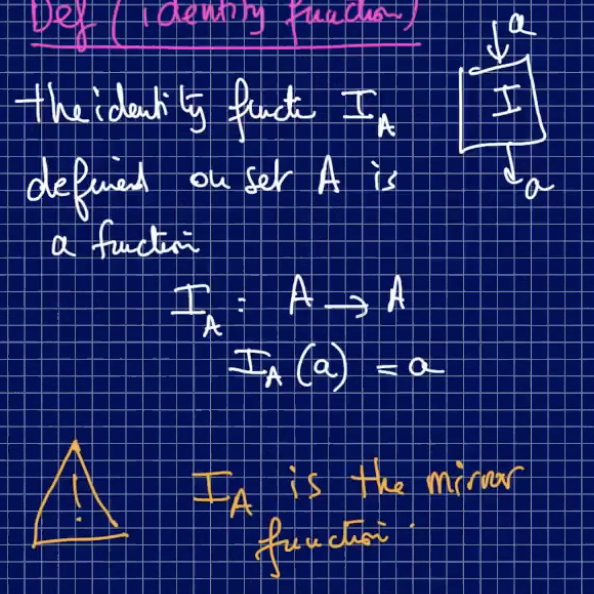 Def (identity function)
the identity functi I_A
defined on set A is
a function
I_A : A → A
I_A (a) = a
a
I
a
!
I_A is the mirror
function.